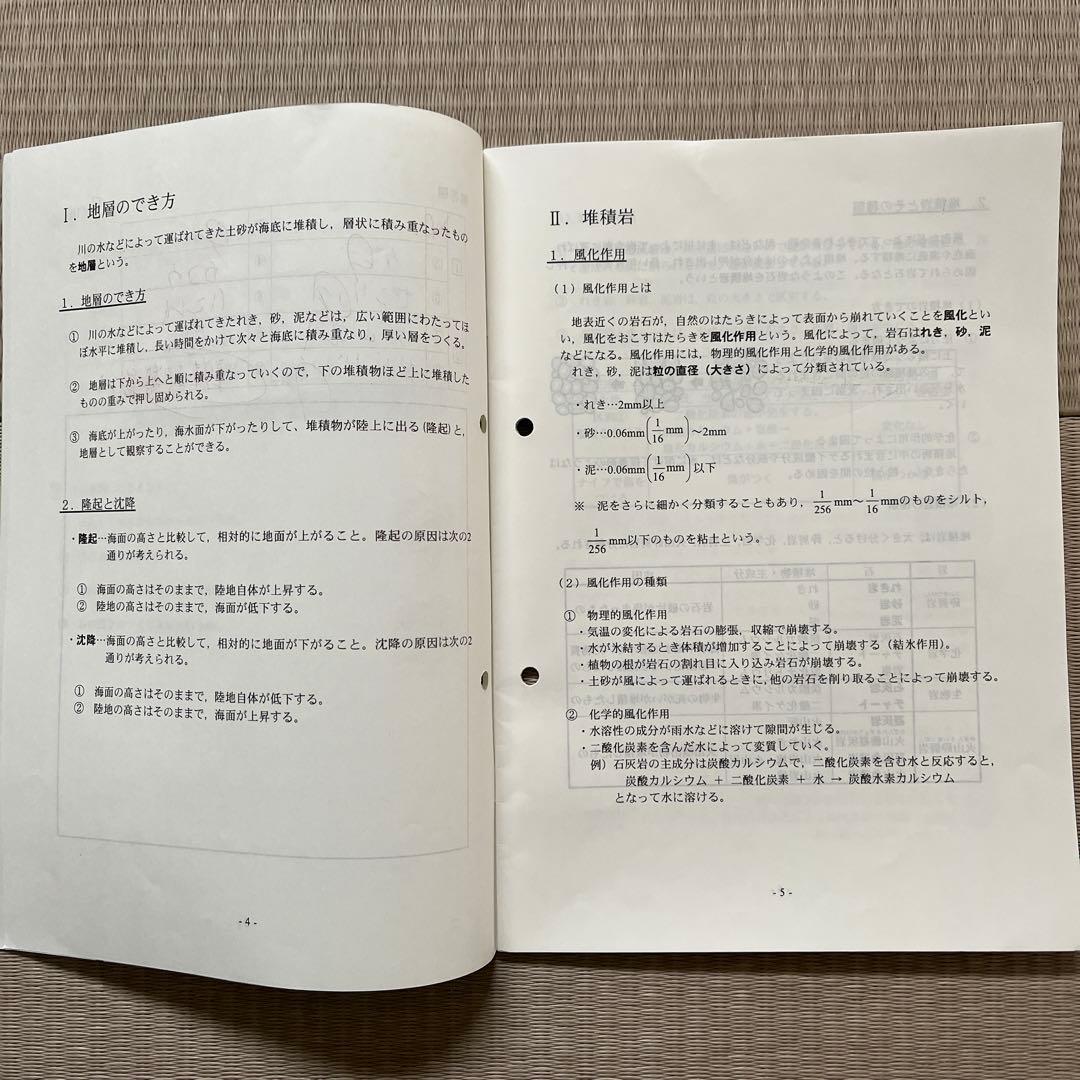 Ⅰ．地層のでき方
川の水などによって運ばれてきた土砂が海底に堆積し，層状に積み重なったもの
を地層という。
１．地層のでき方
① 川の水などによって運ばれてきたれき，砂，泥などは，広い範囲にわたってほ
ぼ水平に堆積し，長い時間をかけて次々と海底に積み重なり，厚い層をつくる。
② 地層は下から上へと順に積み重なっていくので，下の堆積物ほど上に堆積した
ものの重みで押し固められる。
③ 海底が上がったり，海水面が下がったりして、堆積物が陸上に出る(隆起)と，
地層として観察することができる。
２．隆起と沈降
・隆起…海面の高さと比較して，相対的に地面が上がること。隆起の原因は次の2
通りが考えられる。
① 海面の高さはそのままで，陸地自体が上昇する。
② 陸地の高さはそのままで，海面が低下する。
・沈降…海面の高さと比較して，相対的に地面が下がること。沈降の原因は次の2
通りが考えられる。
① 海面の高さはそのままで，陸地自体が低下する。
② 陸地の高さはそのままで，海面が上昇する。
- 4 -
Ⅱ．堆積岩
１．風化作用
（１）風化作用とは
地表近くの岩石が，自然のはたらきによって表面から崩れていくことを風化とい
い，風化をおこすはたらきを風化作用という。風化によって，岩石はれき，砂，泥
などになる。風化作用には，物理的風化作用と化学的風化作用がある。
れき，砂，泥は粒の直径（大きさ）によって分類されている。
・れき…2mm以上
・砂…0.06mm(1/16 mm)～2mm
・泥…0.06mm(1/16 mm)以下
※ 泥をさらに細かく分類することもあり，1/256 mm～1/16 mmのものをシルト，
1/256 mm以下のものを粘土という。
（２）風化作用の種類
① 物理的風化作用
・気温の変化による岩石の膨張，収縮で崩壊する。
・水が氷結するとき体積が増加することによって崩壊する（結氷作用）。
・植物の根が岩石の割れ目に入り込み岩石が崩壊する。
・土砂が風によって運ばれるときに，他の岩石を削り取ることによって崩壊する。
② 化学的風化作用
・水溶性の成分が雨水などに溶けて隙間が生じる。
・二酸化炭素を含んだ水によって変質していく。
例）石灰岩の主成分は炭酸カルシウムで，二酸化炭素を含む水と反応すると，
炭酸カルシウム ＋ 二酸化炭素 ＋ 水 → 炭酸水素カルシウム
となって水に溶ける。
- 5 -